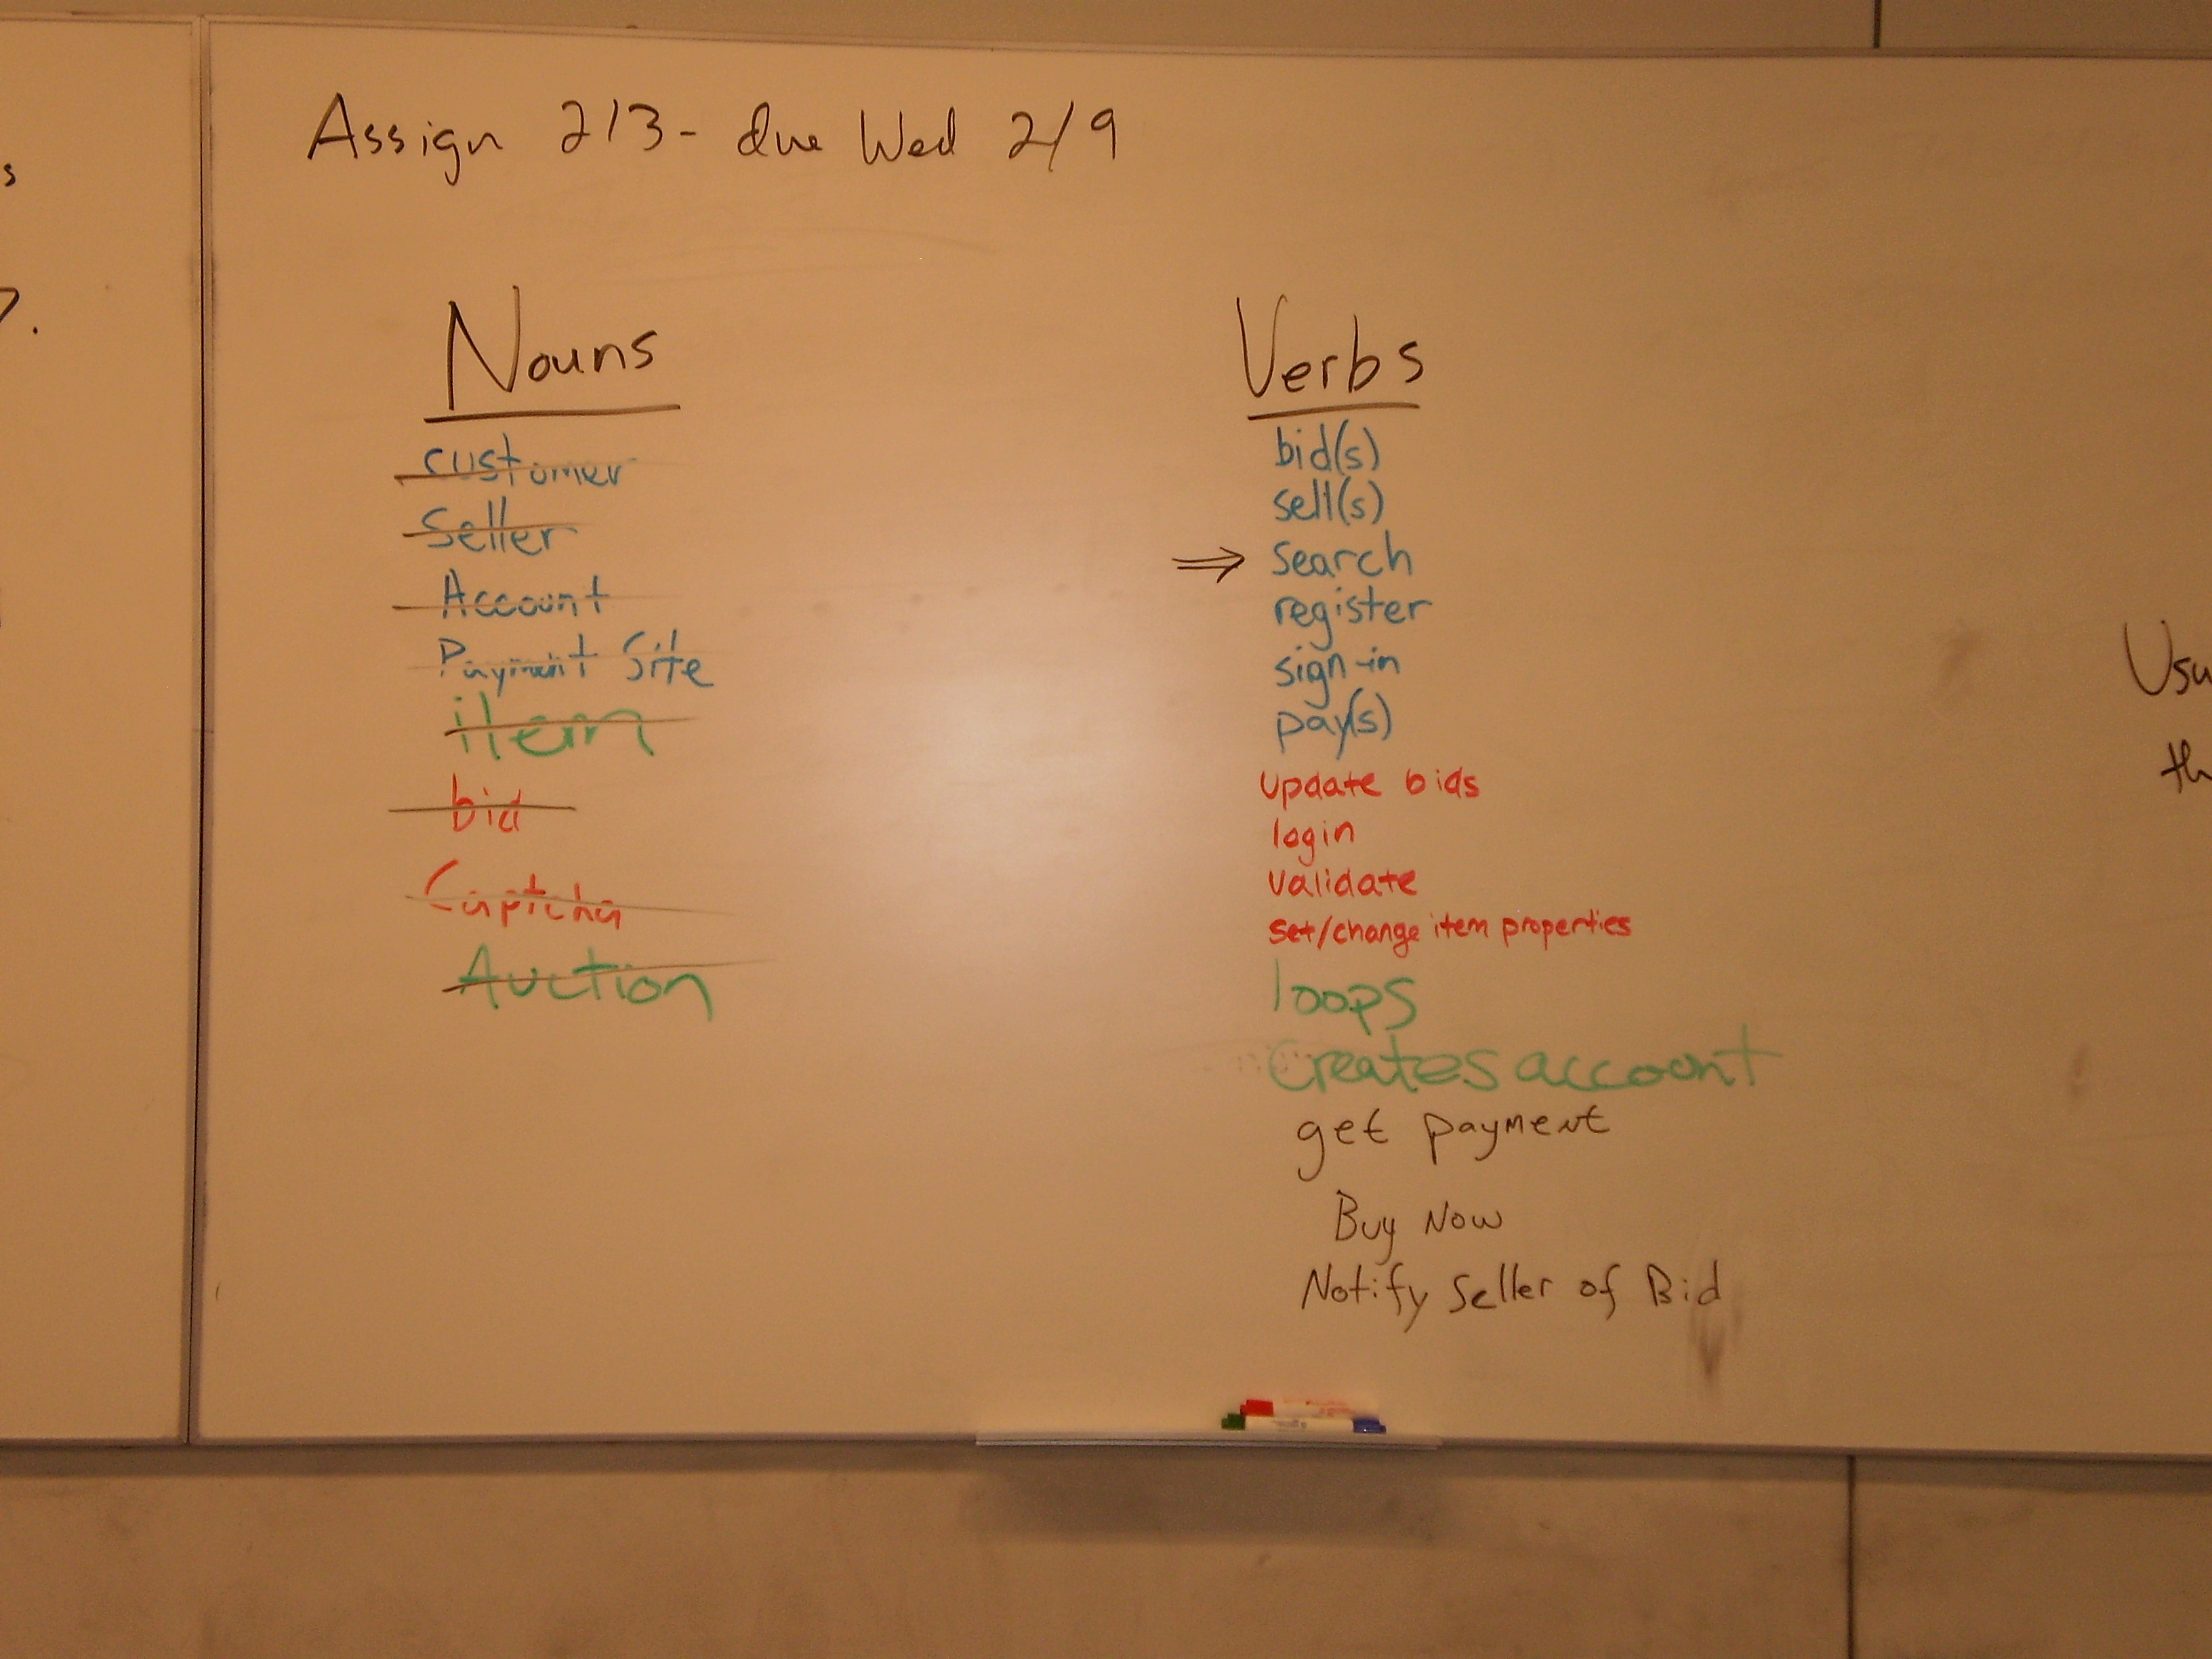 Assign 2/3 - due Wed 2/9
Nouns
customer
Seller
Account
Payment Site
item
bid
Captcha
Auction
Verbs
bid(s)
sell(s)
⇒ search
register
sign-in
pay(s)
update bids
login
validate
set/change item properties
loops
Creates account
get payment
Buy Now
Notify Seller of Bid